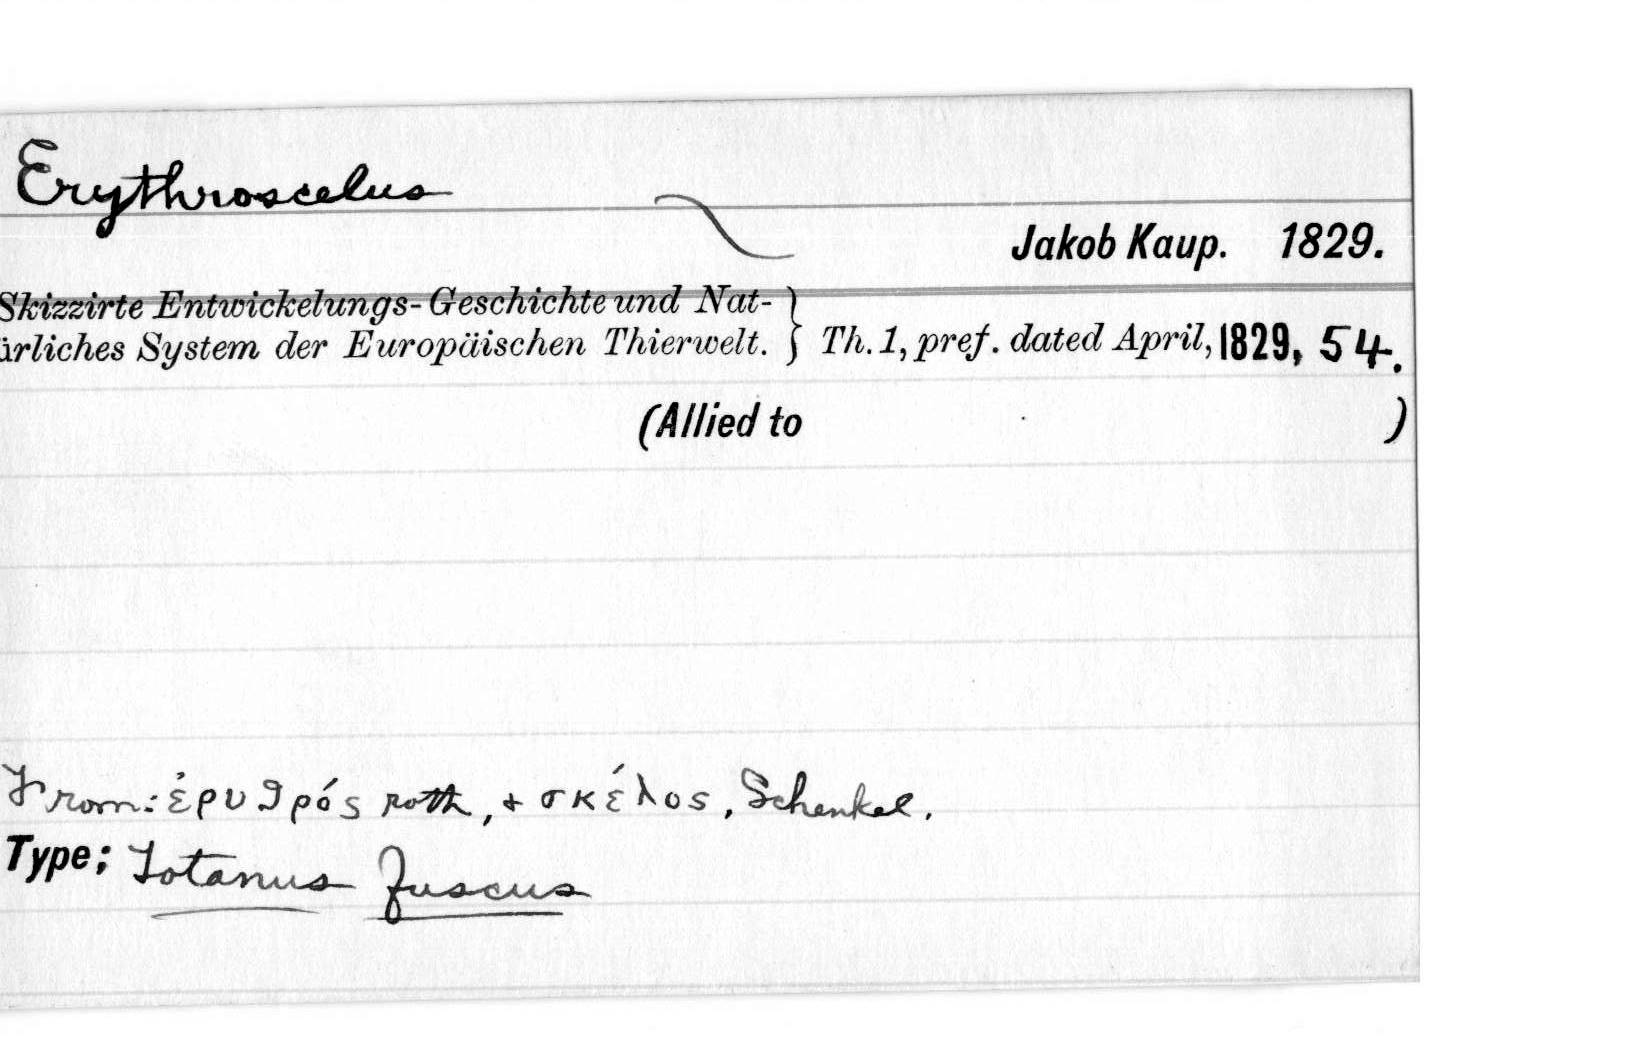 Erythroscelus
Jakob Kaup. 1829.
Skizzirte Entwickelungs-Geschichte und Nat-
ürliches System der Europäischen Thierwelt. } Th. 1, pref. dated April, 1829, 54.
(Allied to )
From: ἐρυθρός roth, + σκέλος, Schenkel.
Type; Totanus fuscus